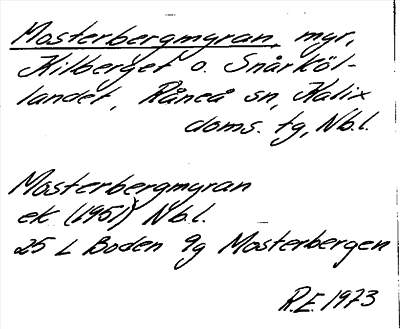 Mosterbergmyran, myr,
Kilberget o. Snårköl-
landet, Råneå sn, Kalix
doms. tg, Nb.l.
Mosterbergmyran
ek (1951) Nb.l.
25 L Boden 9g Mosterbergen
R.E. 1973